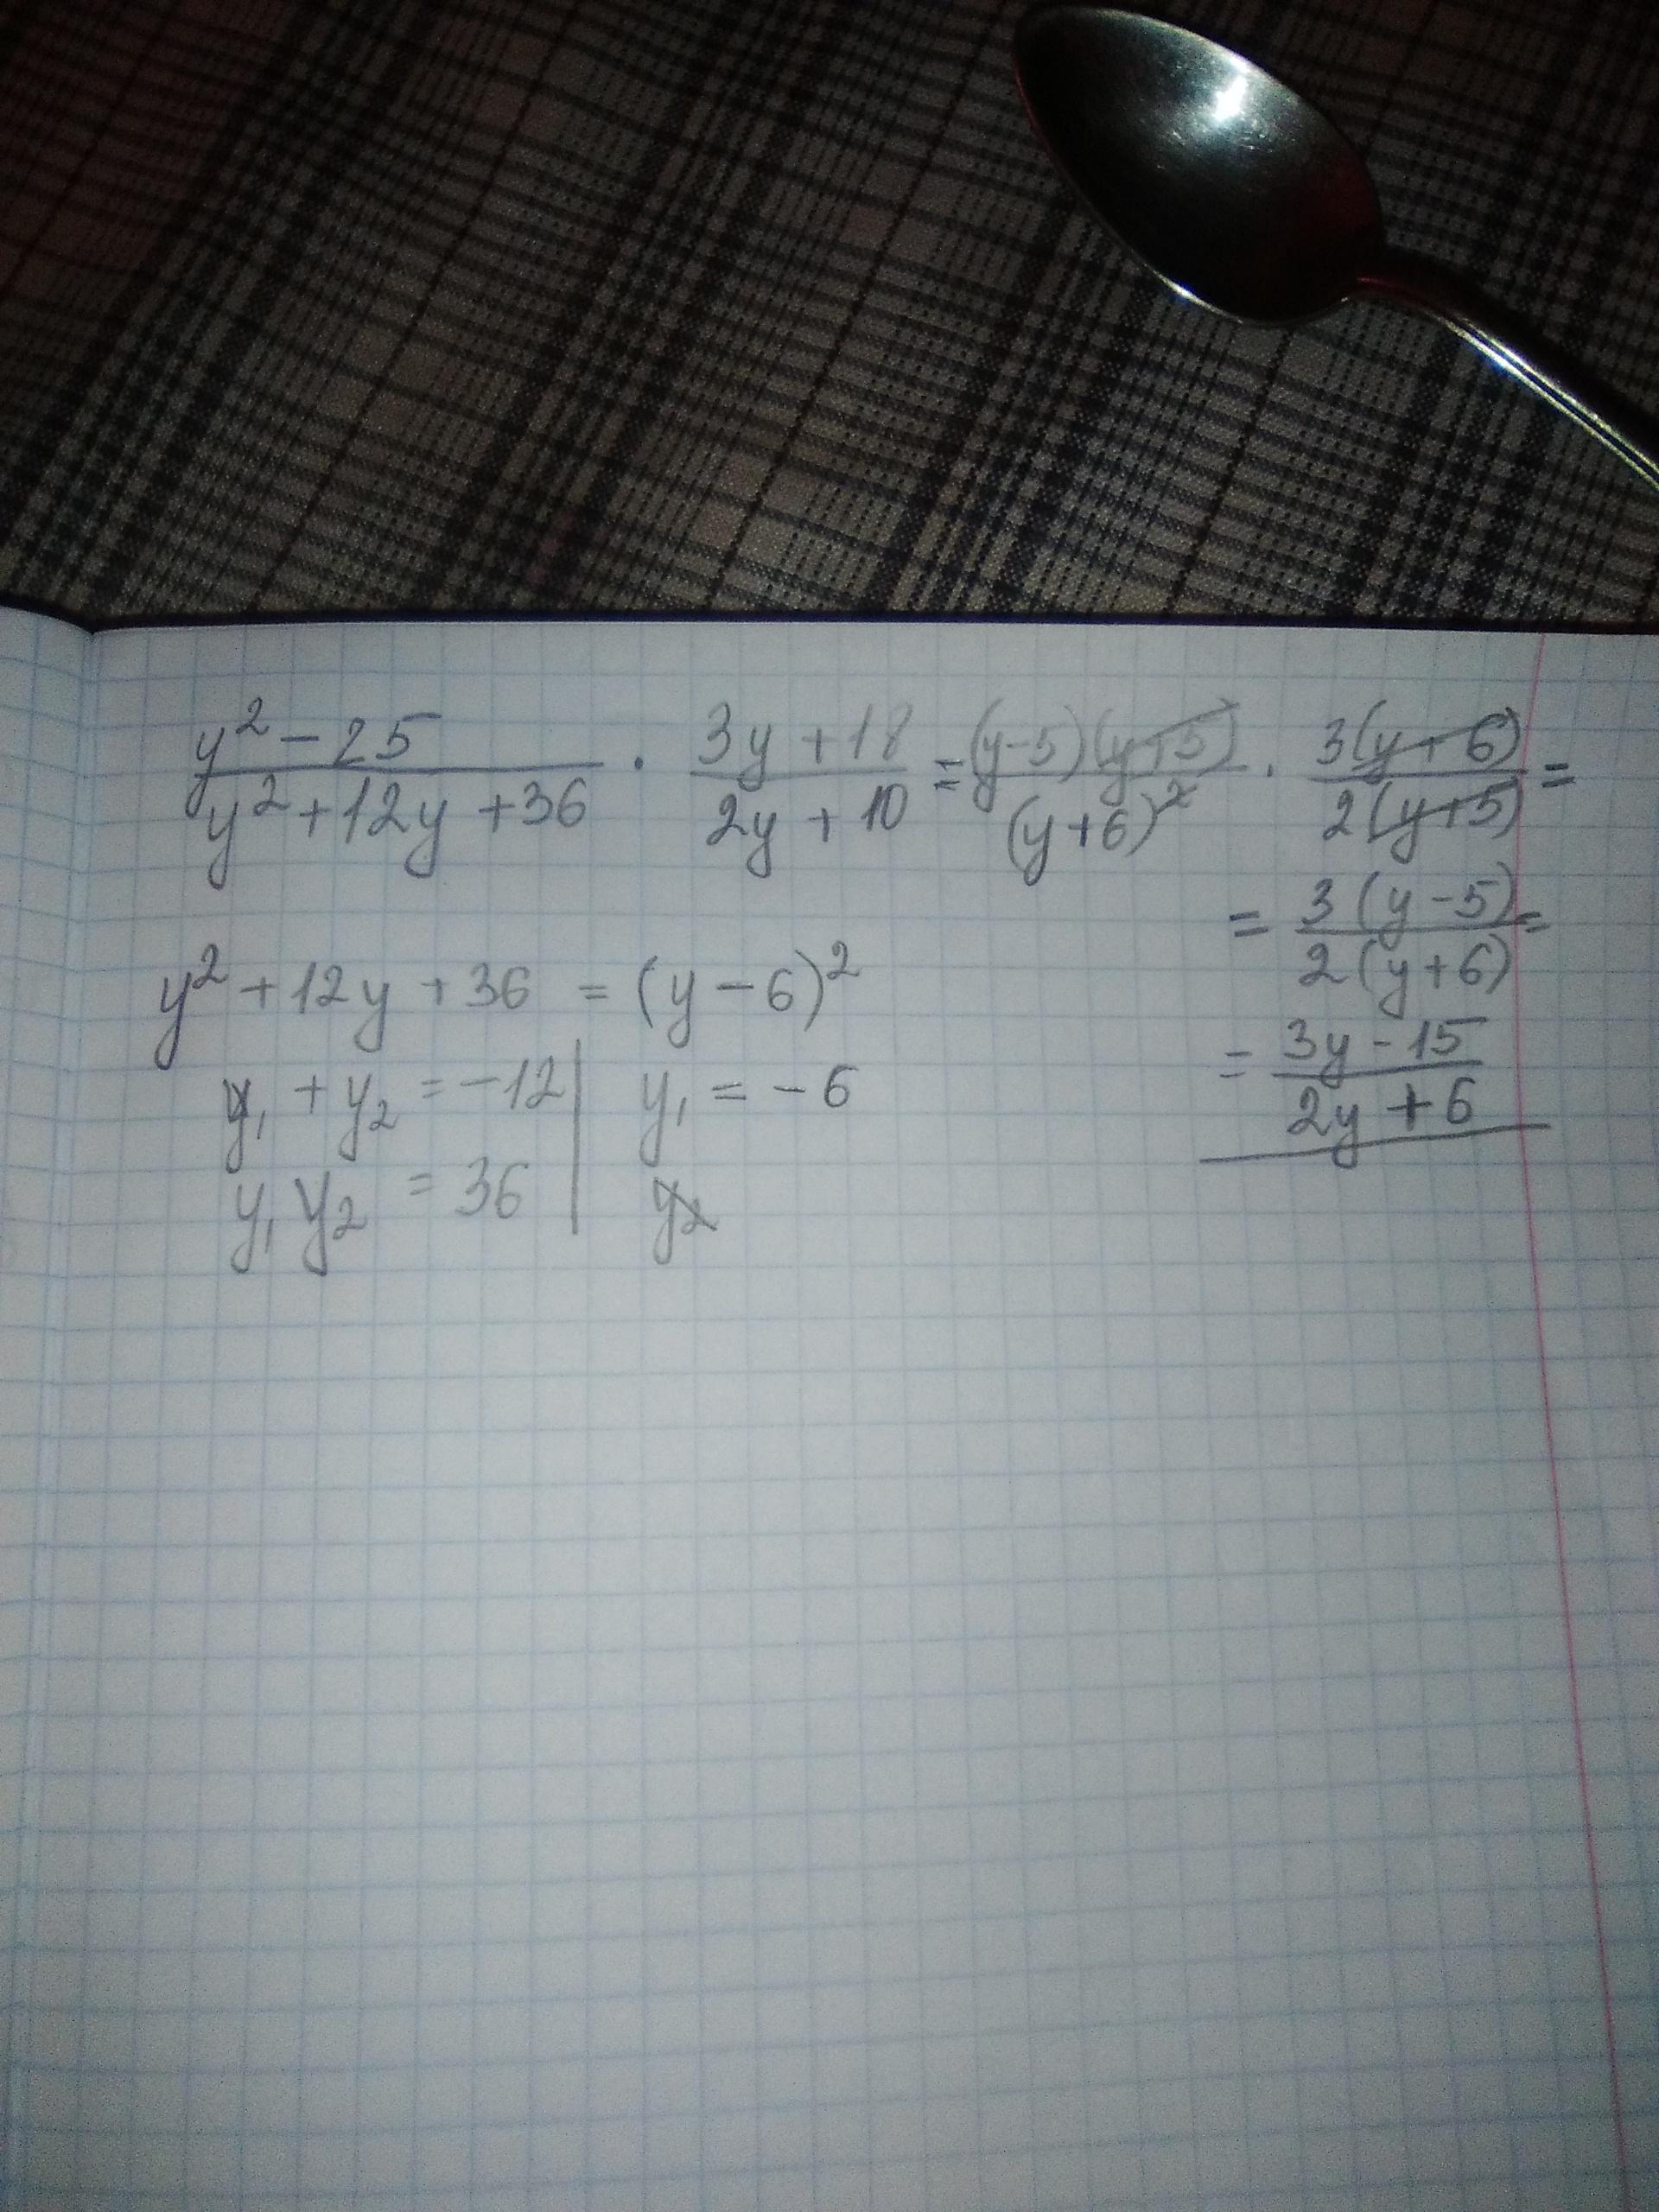 (y² − 25)/(y² + 12y + 36) · (3y + 18)/(2y + 10) = (y − 5)(y + 5)/(y + 6)² · 3(y + 6)/2(y + 5) =
= 3(y − 5)/2(y + 6) =
y² + 12y + 36 = (y − 6)²
= (3y − 15)/(2y + 6)
y₁ + y₂ = −12 | y₁ = −6
y₁ y₂ = 36 | y₂